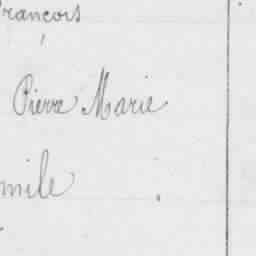 François
Pierre Marie
mile